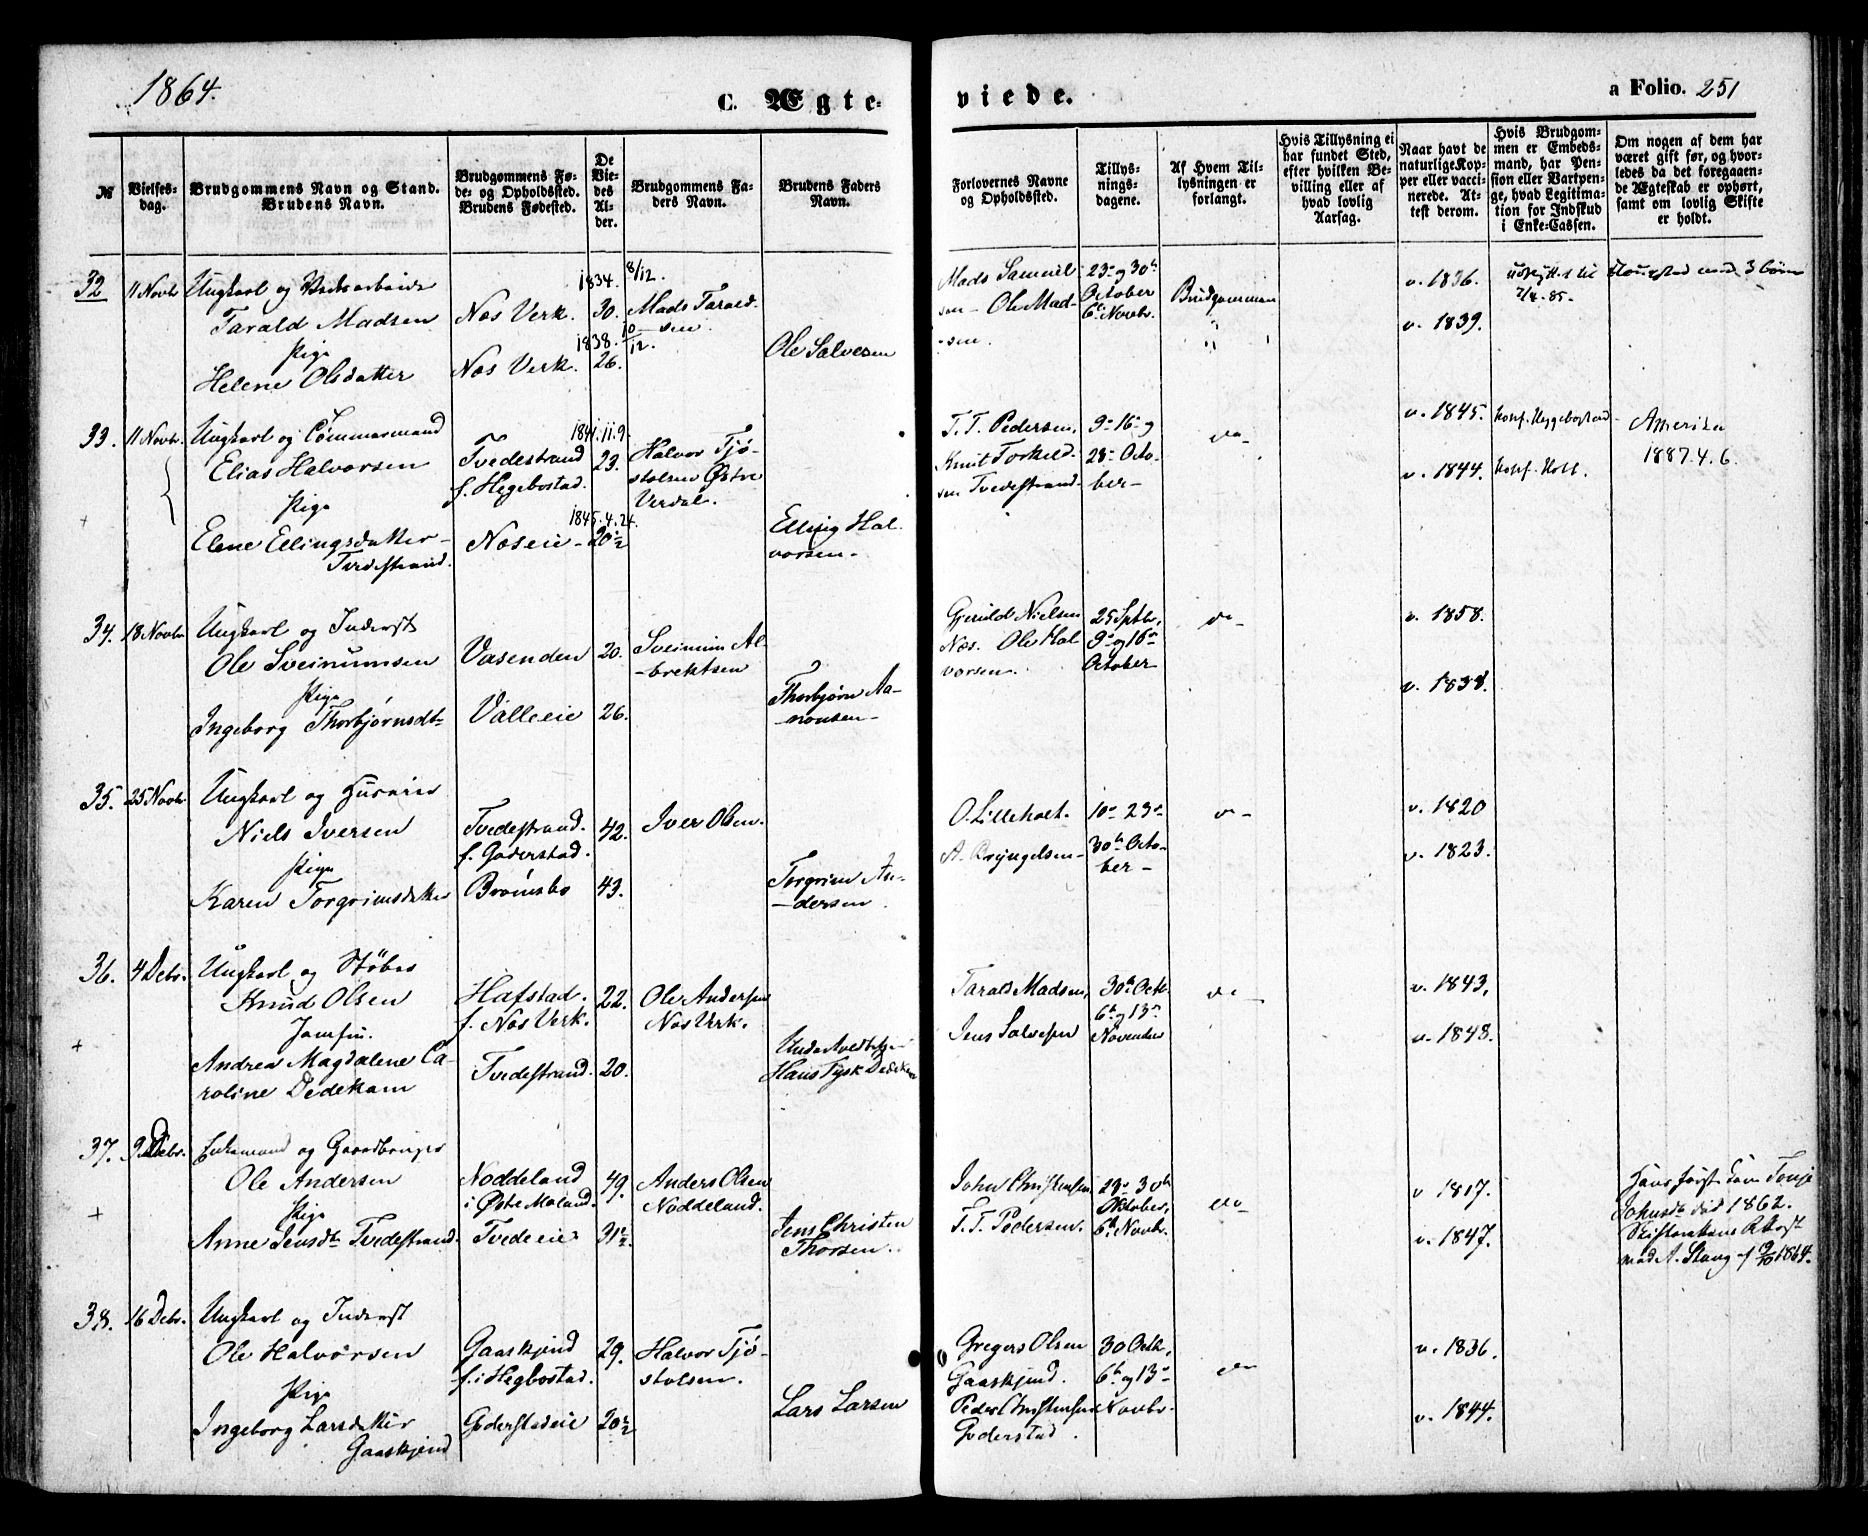 1864.
C. Ægte-
viede.
a Folio. 251
№
Vielses-
dag.
Brudgommens Navn og Stand.
Brudens Navn.
Brudgommens Fø-
de- og Opholdssted.
Brudens Fødested.
De
Vie-
des
Al-
der.
Brudgommens Fa-
ders Navn.
Brudens Faders
Navn.
Forlovernes Navne
og Opholdssted.
Tillys-
nings-
dagene.
Af Hvem Til-
lysningen er
forlangt.
Hvis Tillysning ei
har fundet Sted,
efter hvilken Be-
villing eller af
hvad lovlig
Aarsag.
Naar havt de
naturlige Kop-
per eller vacci-
nerede. At-
test derom.
Hvis Brudgom-
men er Embeds-
mand, har Pen-
sion eller Vartpen-
ge, hvad Legitima-
tion for Indskud
i Enke-Cassen.
Om nogen af dem har
været gift før, og hvor-
ledes da det foregaaen-
de Ægteskab er ophørt,
samt om lovlig Skifte
er holdt.
32
11 Novbr
Ungkarl og
Tarald Madsen
Pige
Helene Olsdatter
Næs Verk.
Næs Verk.
1834. 8/12.
30.
1838. 10/12.
26.
Mads Tarald-
-sen.
Ole Salvesen
Mads Samuel-
sen - Ole Mad-
-sen.
23de og 30te
October
6te Novbr.
Brudgommen
"
"
v. 1836.
v. 1839.
7/4. 85.-
med 3 børn
33.
11 Novbr.
Ungkarl og Tømmermand
Elias Halvorsen
Pige
Elene Ellingsdatter
Tvedestrand.
Tvedestrand
f. Hegebostad.
Næseie -
1841.11.9.
23.
1845.4.24.
20½
Halvor Tjø-
stolsen Østre
Verdal.
Elling Hal-
vorsen.
T. T. Pedersen,
Knut Torkild-
sen Tvedestrand
9de 16de og
23de Octo-
ber -
do -
v. 1845.
v. 1844.
Amerika
1887.4.6.
+
34.
18 Novbr
Ungkarl og Inderst
Ole Sveinumsen
Pige
Ingeborg Thorbjørnsdtr
Vasenden
Valleeie
20.
26.
Sveinum Al-
-brektsen
Thorbjørn Aa-
nonsen -
Nielsen
Næs. Ole Hal-
vorsen.
25 Septbr,
9de og 16de
October
do -
v. 1858.
v. 1838.
35.
25 Novbr
Ungkarl og Huseier
Niels Iversen
Pige
Karen Torgrimsdatter
Tvedestrand.
f. Goderstad.
Brømsbo
42.
43.
Iver Olsen.
Torgrim An-
-dersen.
O. Lilleholt.
A. Bryngelsen
10de 23de
30te Octo-
ber -
do -
v. 1820
v. 1823.
36.
4 Debr.
Ungkarl og Støber
Knud Olsen
Jomfru.
Andrea Magdalene Ca-
roline Dedekam
Hafstad.
f. Næs Verk.
Tvedestrand.
22.
20.
Ole Andersen
Næs Verk.
Hans Tysk Dedekam
Tarald Madsen,
Jens Salvesen
30te Octb.
6te og 13de
November
do -
v. 1843.
v. 1848.
+
37.
9 Debr.
Enkemand og Gaardbruger
Ole Andersen
Pige
Anne Jensdtr Tvedestrand.
Noddeland
i Østre Moland.
Tvedeeie
49.
31½
Anders Olsen
Noddeland.
Jens Christen
Thorsen.
John Christensen
T. T. Pedersen.
23de 30te
Oktober,
6te Novbr.
do
v 1817.
v. 1847.
Hans første Kone Tonje
Johnsdtr død 1862.
Skifterettens Attest
med A. Stang af 9/10 1864.
+
38.
16 Debr.
Ungkarl og Inderst
Ole Halvorsen
Pige
Ingeborg Larsdatter
Gaaskjend
Gaaskjend
f. i Hegbostad.
Goderstadeie
29.
20½
Halvor Tjø-
stolsen.
Lars Larsen
Gregers Olsen
Gaaskjend.
Peder Christensen
Goderstad.
30 Octb,
6te og 13de
Novbr.
do
v. 1836.
v. 1844.